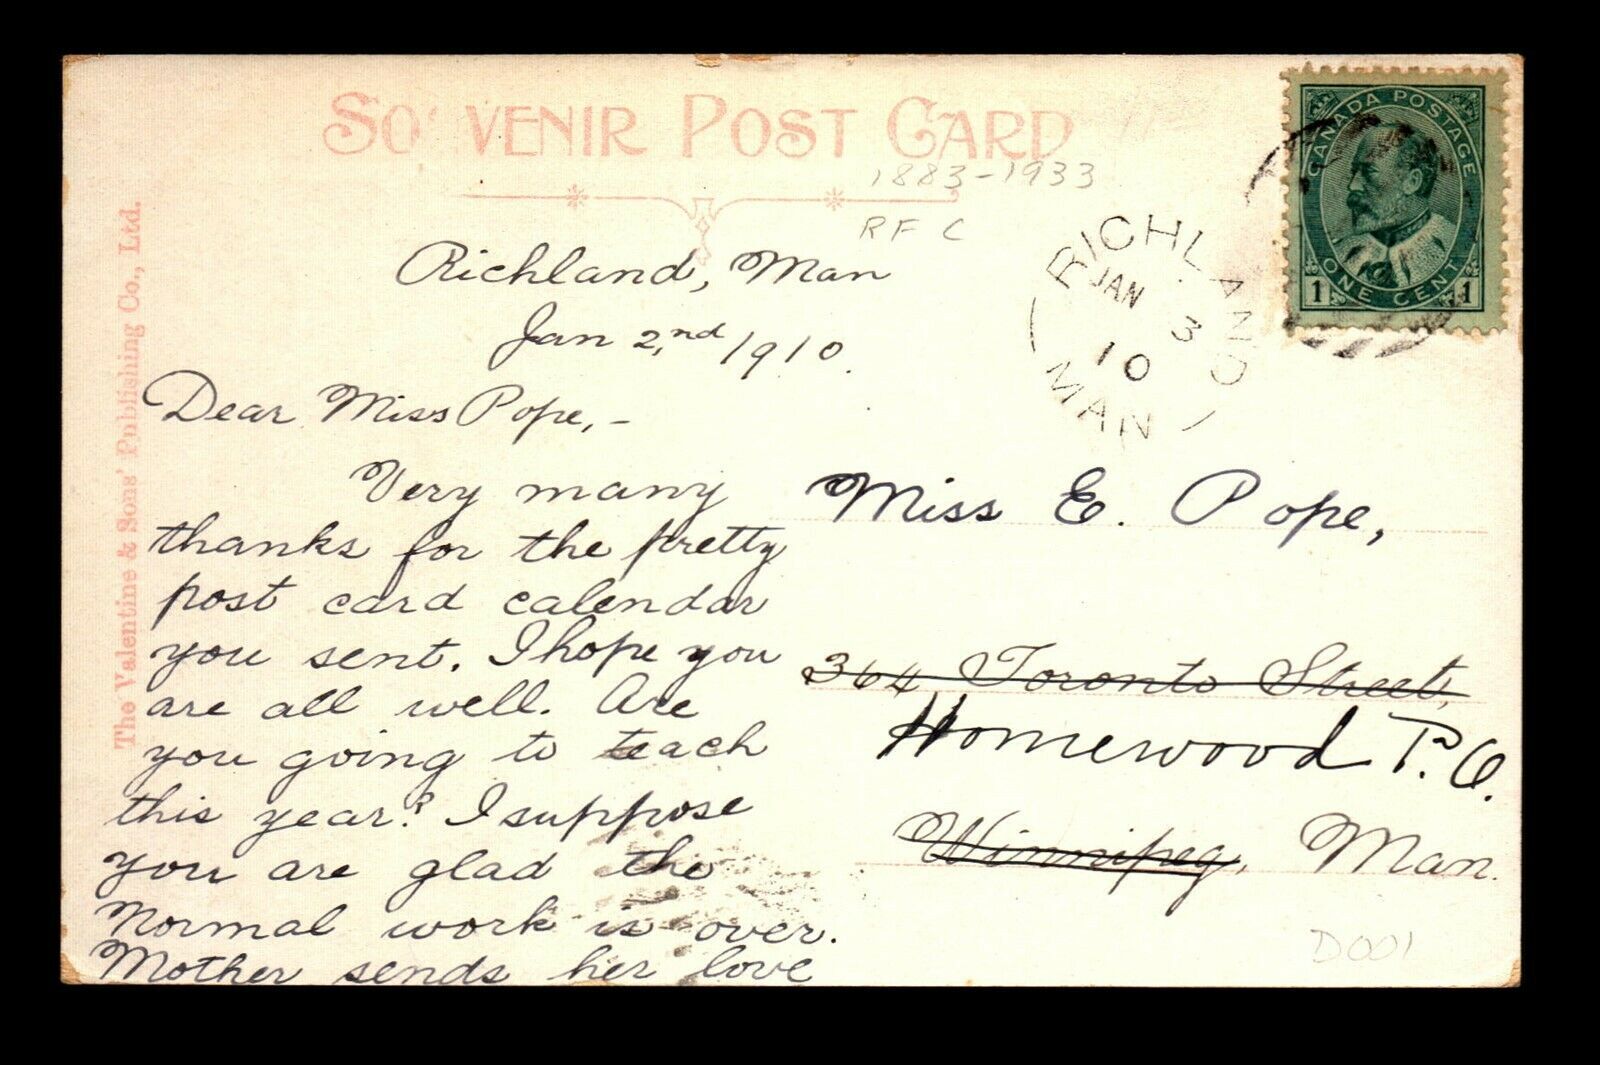 SOUVENIR POST CARD
1883-1933
RF C
The Valentine & Sons' Publishing Co., Ltd.
CANADA POSTAGE
ONE CENT
1 1
RICHLAND
JAN 3
10
MAN
Richland, Man
Jan 2,nd 1910.
Dear Miss Pope,-
Very many
thanks for the pretty
post card calendar
you sent. I hope you
are all well. Are
you going to teach
this year? I suppose
you are glad the
Normal work is over.
Mother sends her love
Miss E. Pope,
364 Toronto Street,
Homewood P.O.
Winnipeg, Man.
D001